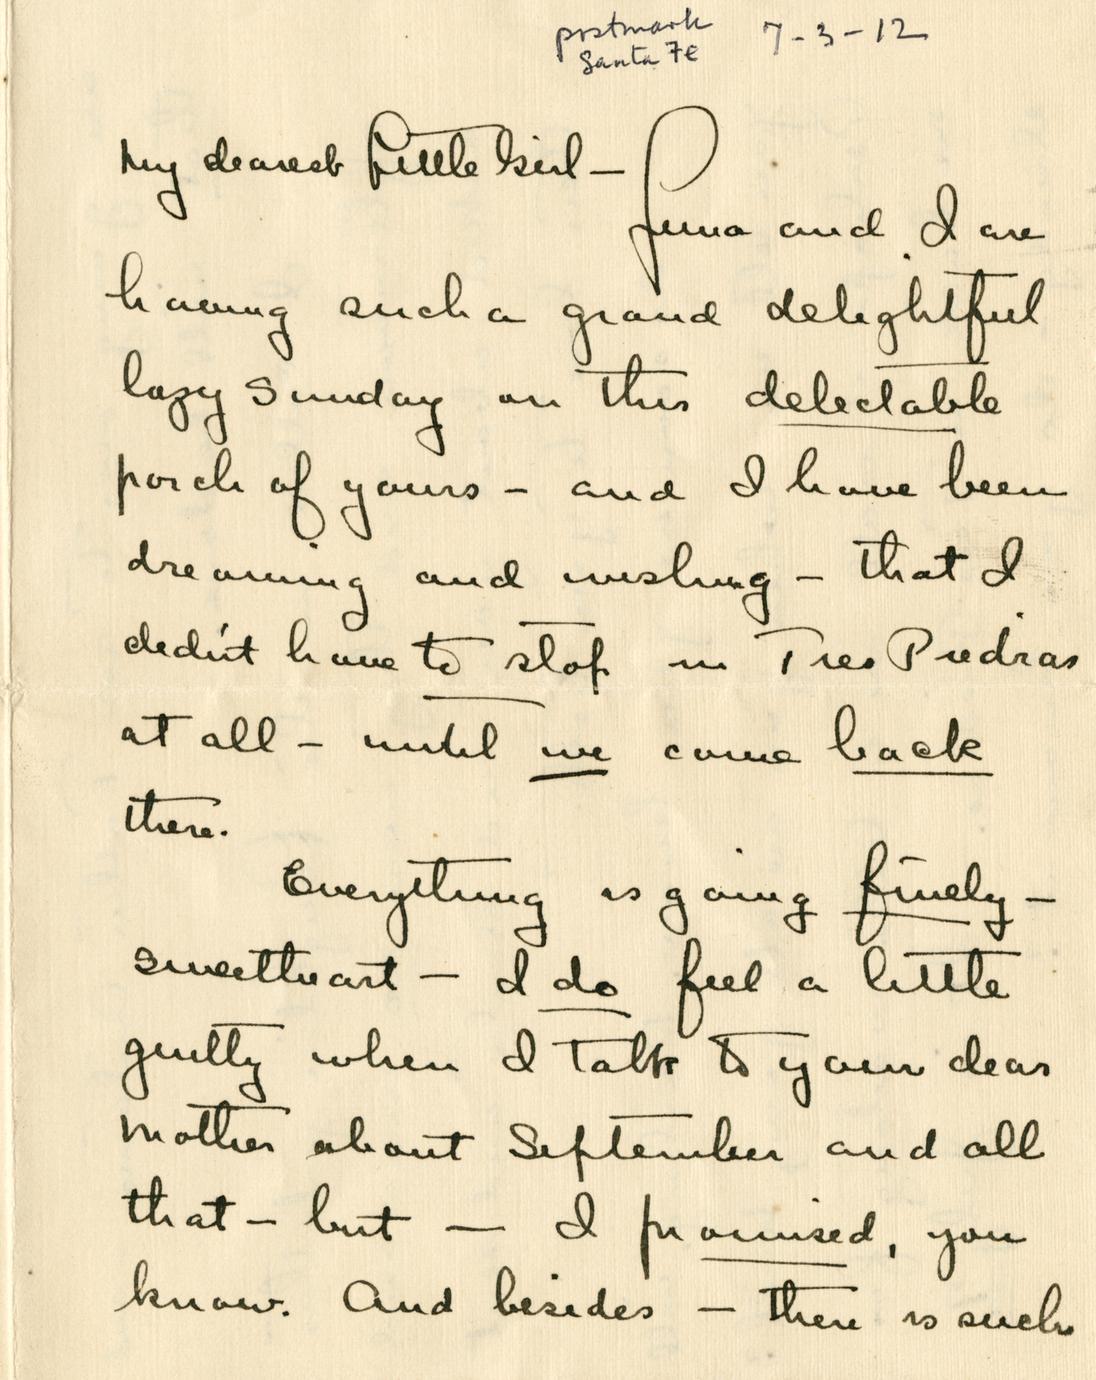 postmark 7-3-12
Santa Fe
My dearest Little Girl—
Luna and I are
having such a grand delightful
lazy Sunday on this delectable
porch of yours – and I have been
dreaming and wishing – that I
dedn't have to stop in Tres Piedras
at all – until we come back
there.
Everything is going finely –
sweetheart – I do feel a little
guilty when I talk to your dear
mother about September and all
that – but — I promised, you
know. And besides – there is such